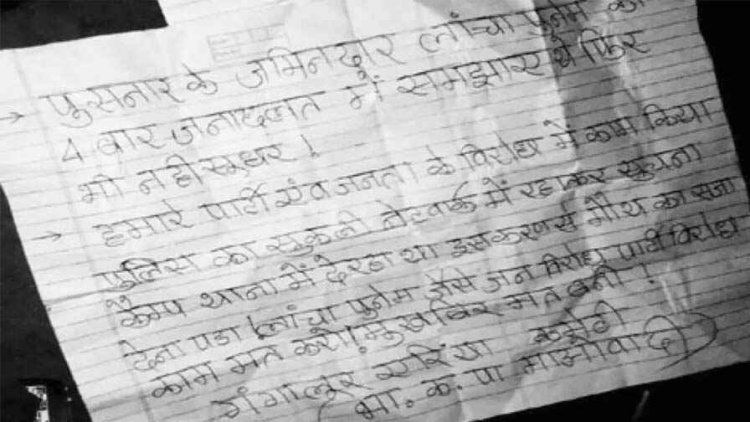 → पुसनार के जमिनदार लांचा पुनेम को
4 बार जनादलत में समझाए थे फिर
भी नही सुधर !
→ हमारे पार्टी एंव जनता के विरोध में काम किया
पुलिस का नेटवर्क में रहकर सुचना
कैम्प थाना में देरहा था इसकरण से मौथ का सजा
देना पडा ! लांचा पुनेम जैसे जन विरोध पार्टी विरोध
काम मत करो ! मुखबिर मत बनो !
गंगालूर एरिया कमेटी
भा. क. पा माओवादी)